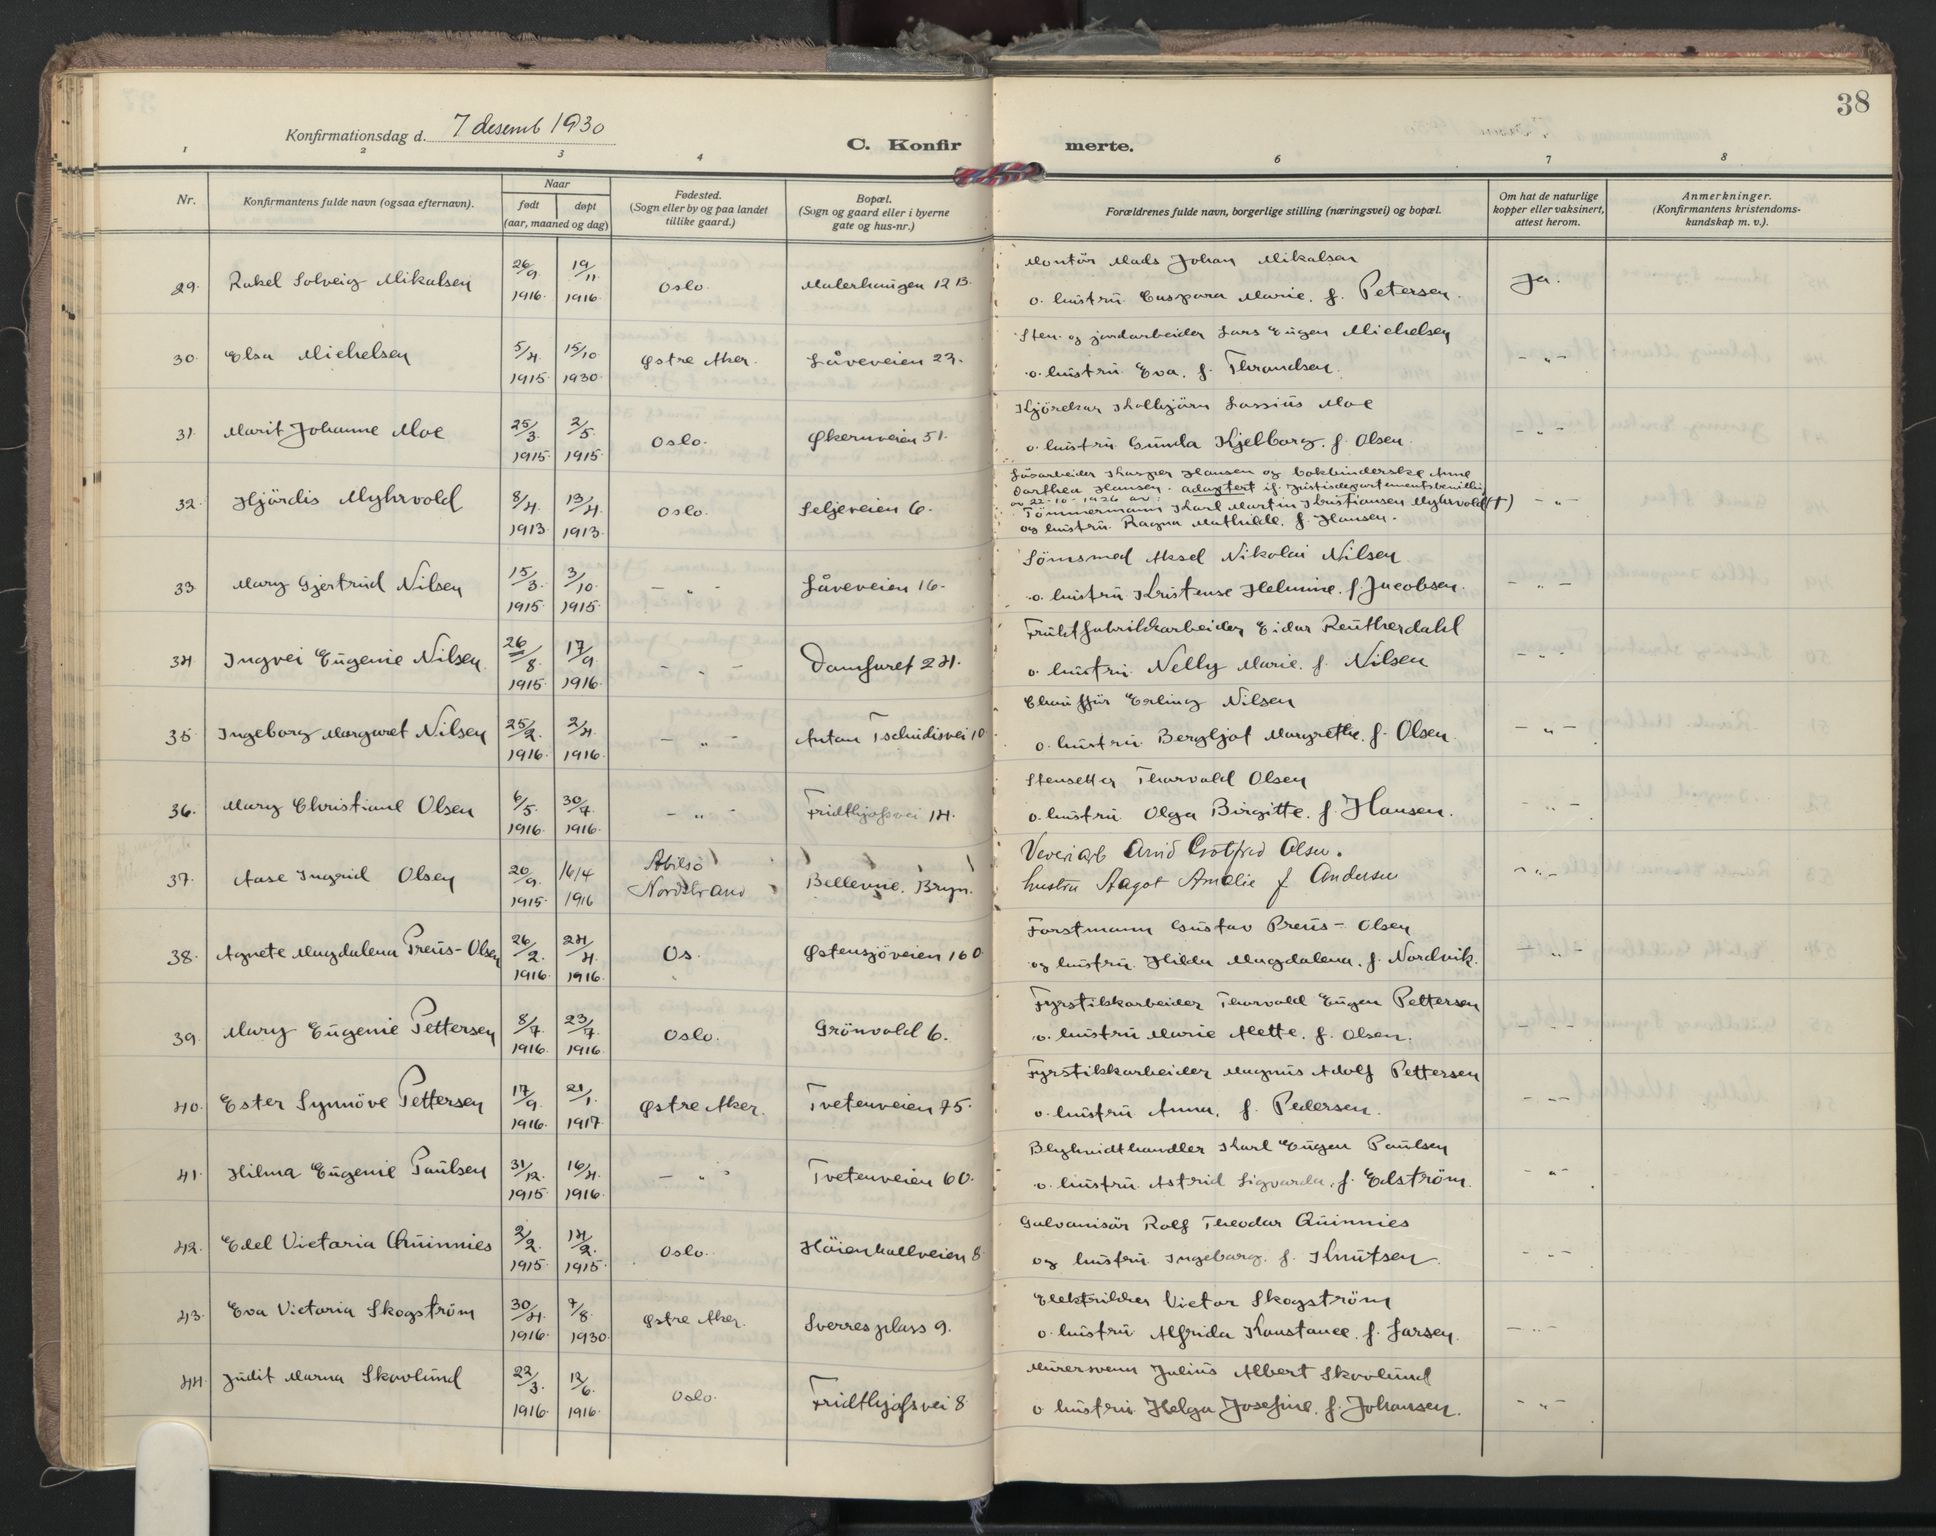 38
Konfirmationsdag d. 7 desemb 1930
C. Konfirmerte.
1 2 3 4 6 7 8
Nr.
Konfirmantens fulde navn (ogsaa efternavn).
Naar
født døpt
(aar, maaned og dag)
Fødested.
(Sogn eller by og paa landet
tillike gaard.)
Bopæl.
(Sogn og gaard eller i byerne
gate og hus-nr.)
Forældrenes fulde navn, borgerlige stilling (næringsvei) og bopæl.
Om hat de naturlige
kopper eller vaksinert,
attest herom.
Anmerkninger.
(Konfirmantens kristendoms-
kundskap m. v.).
29. Rakel Solveig Mikalsen 26/9 1916 19/11 1916. Oslo. Malerhaugen 12 B. Montör Mads Johan Mikalsen
o. hustru Caspara Marie. f. Petersen. Ja.
30. Elsa Michelsen 5/4 1915. 15/10 1930. Østre Aker. Låveveien 23. Sten- og jordarbeider Lars Eugen Michelsen
o. hustru Eva. f. Thrandsen. - " -
31. Marit Johanne Moe 25/3. 1915. 2/5. 1915. Oslo. Økernveien 51. Kjörekar Kolbjörn Lassius Moe
o. hustru Gunda Kjelborg. f. Olsen. - " -
32. Hjördis Myhrvold 8/4. 1913. 13/4 1913. Oslo. Seljeveien 6. Lösarbeider Kasper Hansen og bokbinderske Anne
Dorthea Hansen. adoptert if. justisdepartementsbevilling
av 22-10-1926 av:
Tömmermann Karl Martin Kristiansen Myhrvold (†)
og hustru Ragna Mathilde. f. Hansen. - " -
33. Mary Gjertrud Nilsen 15/3. 1915. 3/10. 1915. - " - Låveveien 16. Sömsmed Aksel Nikolai Nilsen
o. hustru Kristense Helmine. f. Jacobsen. - " -
34 Ingvei Eugenie Nilsen. 26/8. 1915. 17/9 1916. - " - Damfaret 24. Fruktfabrikkarbeider Eidar Reutherdahl
o. hustru Nelly Marie. f. Nilsen - " -
35. Ingeborg Margaret Nilsen 25/2. 1916. 2/4. 1916. - " - Anton Tschudisvei 10 Chauffür Erling Nilsen
o. hustru Bergljot Margrethe. f. Olsen. - " -
36. Mary Christiane Olsen 6/5 1916. 30/7. 1916. - " - Fridthjofsvei 14. Stensetter Thorvald Olsen
o. hustru Olga Birgitte. f. Hansen. - " -
37. Aase Ingrid Olsen 20/9. 1915. 16/4 1916 Abilsö
Nordstrand Bellevue. Bryn. Veveriarb Arvid Gotfred Olsen.
hustru Aagot Amalie f Andersen - " -
38. Agnete Magdalena Preus-Olsen 26/2. 1916. 24/4. 1916. Os. Østensjöveien 160 Forstmann Gustav Preus-Olsen
og hustru Hilda Magdalena. f. Nordvik. - " -
39. Mary Eugenie Pettersen 8/7 1916. 23/7. 1916. Oslo. Grönvold 6. Fyrstikkarbeider Thorvald Eugen Pettersen
o. hustru Marie Mette. f. Olsen. - " -
40. Ester Synnöve Pettersen 17/9. 1916. 21/1. 1917. Østre Aker. Tvetenveien 75. Fyrstikkarbeider Magnus Adolf Pettersen
o. hustru Anna. f. Pedersen. - " -
41. Hilma Eugenie Paulsen 31/12. 1915. 16/4 1916. - " - Tvetenveien 60. Blyhvidthandler Karl Eugen Paulsen
o. hustru Astrid Sigvarda. f. Edström. - " -
42. Edel Victoria Quinnies 2/2. 1915. 14/2. 1915. Oslo. Höienhallveien 8. Galvanisör Rolf Theodor Quinnies
og hustru Ingeborg. f. Knutsen. - " -
43. Eva Victoria Skogström 30/4. 1916. 7/8. 1930. Østre Aker. Sverres plass 9. Elektriker Victor Skogström
o. hustru Alfrida Konstance. f. Larsen. - " -
44. Judit Marna Skovlund 22/3. 1916. 12/6. 1916. Oslo. Fridthjofsvei 8. Murersvenn Julius Albert Skovlund
o hustru Helga Josefine. f. Johansen. - " -